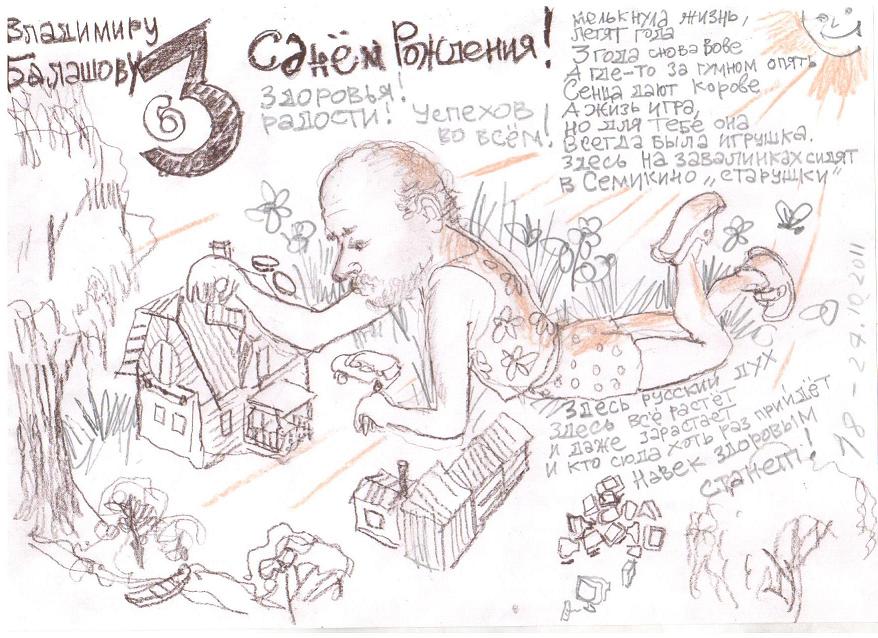 Владимиру
Балашову
63
С днём Рождения!
Здоровья!
радости! Успехов
во всём!
мелькнула жизнь,
летят года
3 года снова Вове
А где-то за гумном опять
Сенца дают корове
А жизь игра,
но для тебя она
всегда была игрушка.
Здесь на завалинках сидят
в Семикино „старушки"
Здесь русский дух
Здесь всё растёт
и даже зарастает
и кто сюда хоть раз прийдёт
Навек здоровым
станет!
18 - 27.10.2011